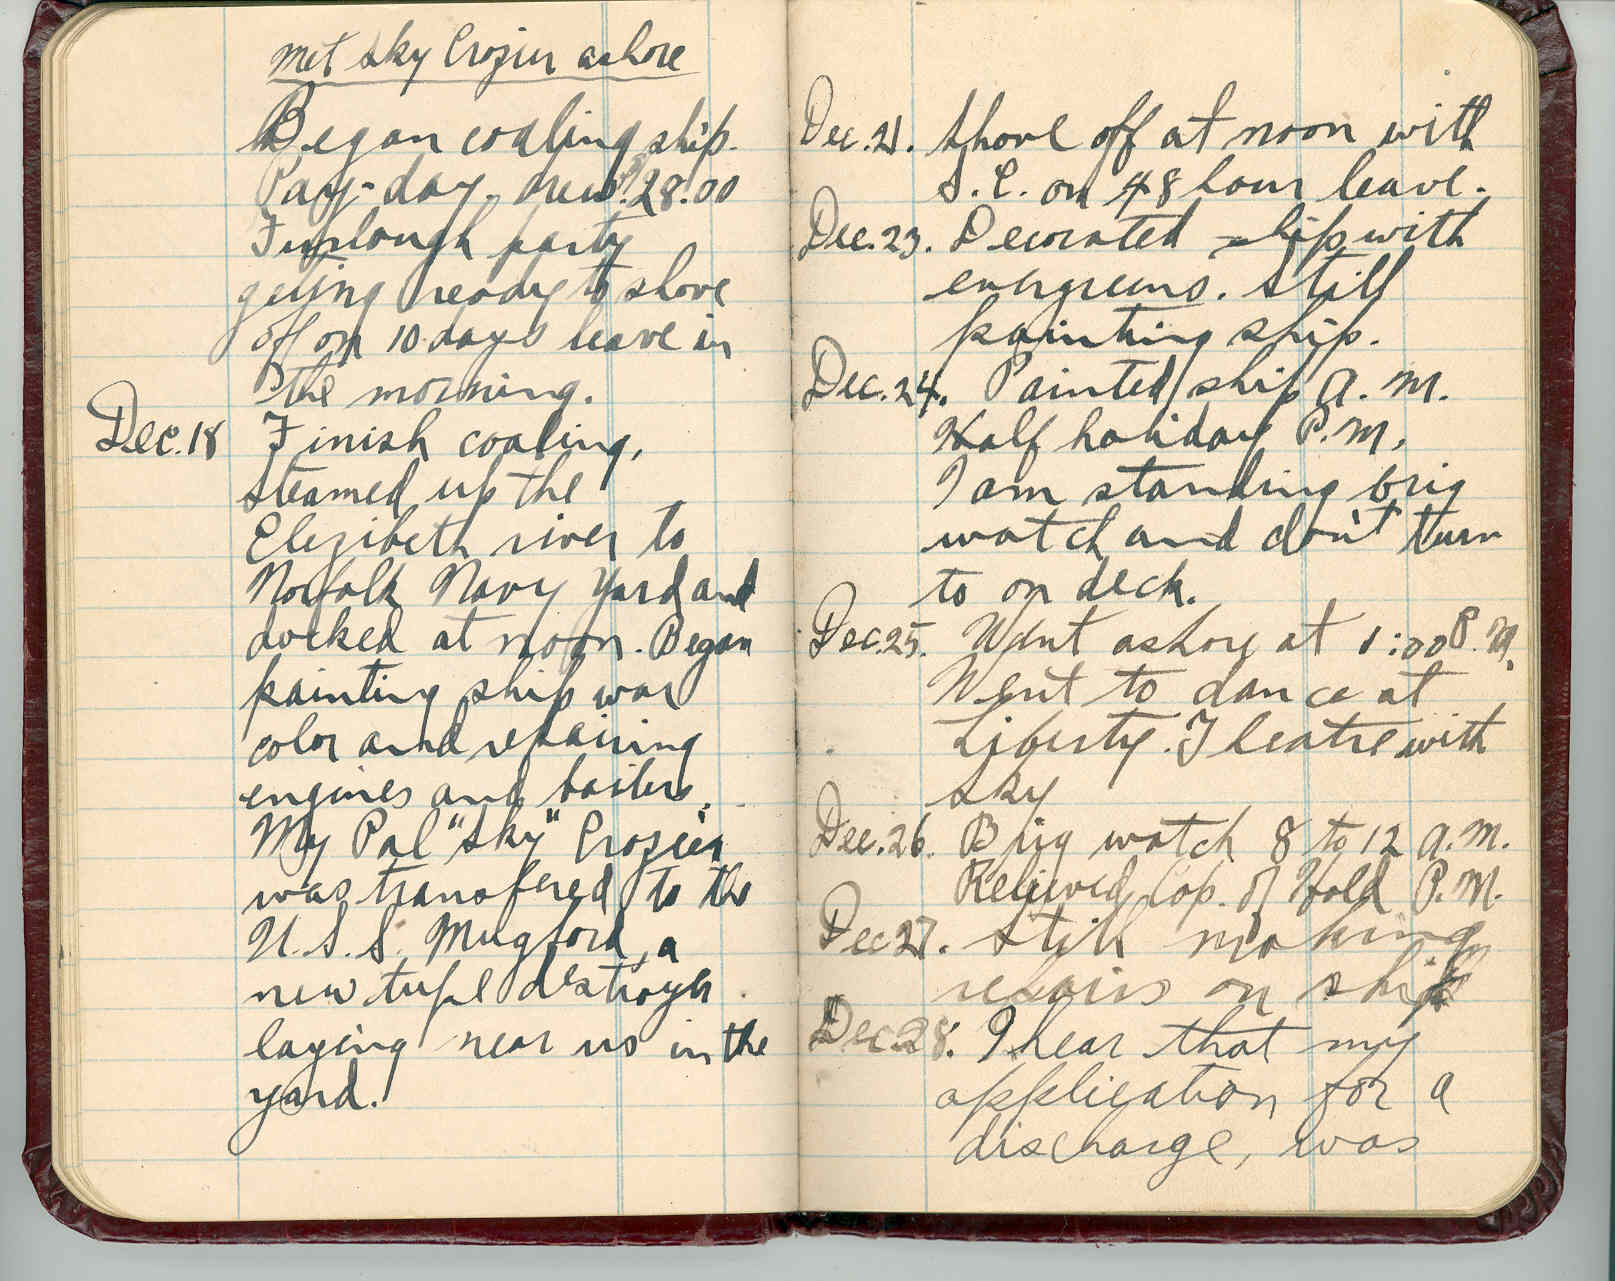 Met Sky Crozier ashore
Began coaling ship.
Pay-day. drew $28.00
Furlough party
getting ready to shove
off on 10 days leave in
the morning.
Dec. 18 Finish coaling,
steamed up the
Elezibeth river to
Norfolk Navy Yard and
docked at noon. Began
painting ship war
color and repairing
engines and boilers.
My Pal "Sky" Crozier
was transfered to the
U.S.S. Mugford, a
new type destroyer
laying near us in the
yard.
Dec. 21. Shove off at noon with
S. C. on 48 hour leave.
Dec. 23. Decorated ship with
evergreens. Still
painting ship.
Dec. 24. Painted ship A. M.
Half holiday P. M.
I am standing brig
watch and don't turn
to on deck.
Dec. 25. Went ashore at 1:00 P. M.
Went to dance at
Liberty. Theatre with
Sky
Dec. 26. Brig watch 8 to 12 A. M.
Relieved Cap. of Hold P. M.
Dec 27. Still making
repairs on ship
Dec 28. I hear that my
application for a
discharge, was